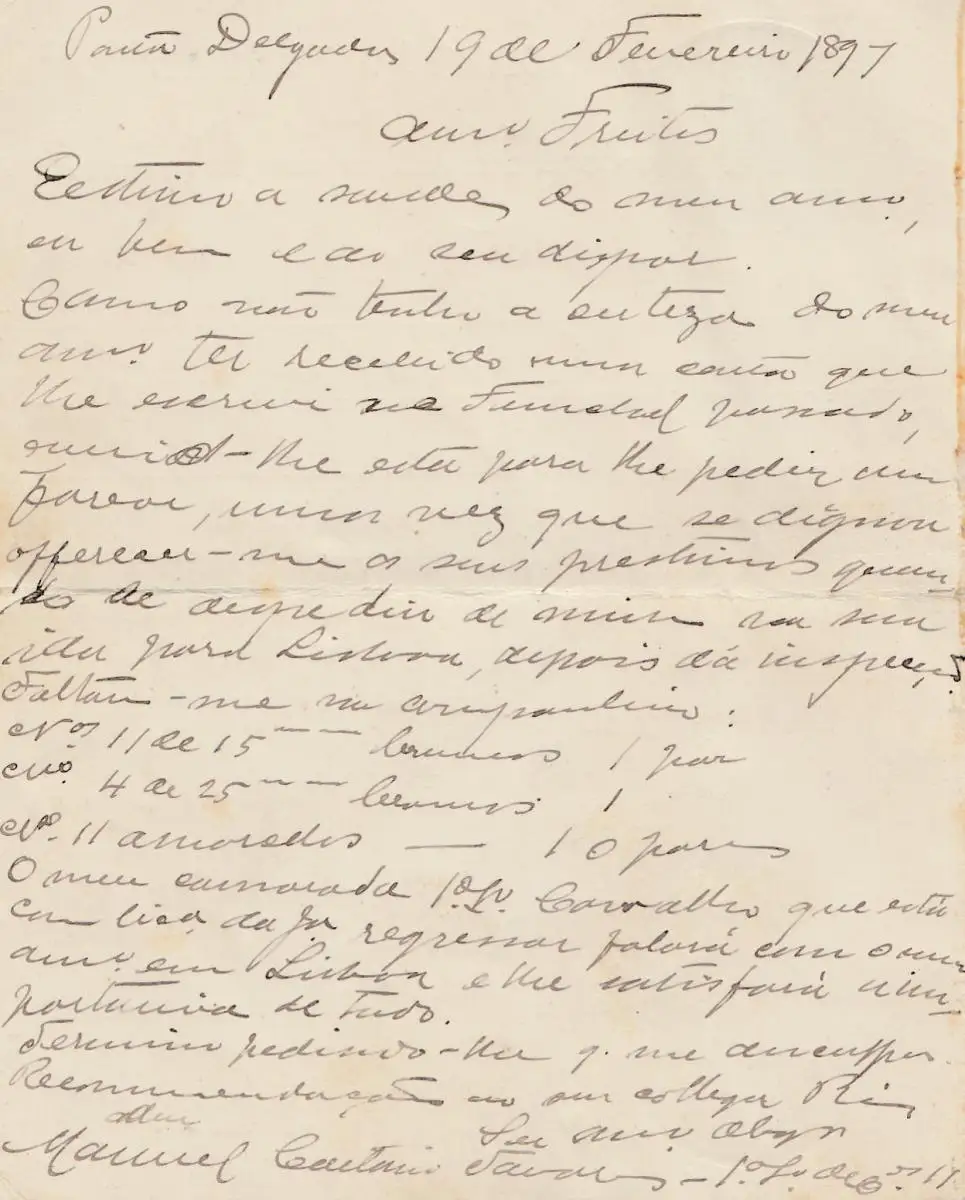 Ponta Delgada 19 de Fevereiro 1897
Amº. Freitas
Estimo a saude do meu amº,
eu bem e ao seu dispor.
Como não tenho a certeza do meu
amº. ter recebido uma carta que
lhe escrevi no passado,
lhe esta para lhe pedir um
favor, uma vez que se dignou
offerecer-me os seus prestimos quan-
do de despediu de mim na sua
ida para Lisboa, depois da inspecçã.
Faltam-me na companhia:
Nos 11 de 15 mm brancos 1 par
No. 4 de 25 mm brancos 1
No. 11 amarados — 10 pares
O meu camarada 1º. Carvalho que está
com licª. regressar falará com o meu
amº. em Lisboa e lhe satisfará a im-
portancia de tudo.
Termino pedindo-lhe q. me desculpe.
Recommendações ao seu collega
Seu amº Obgo
Manuel Caetano Tavares - 1º. de 11